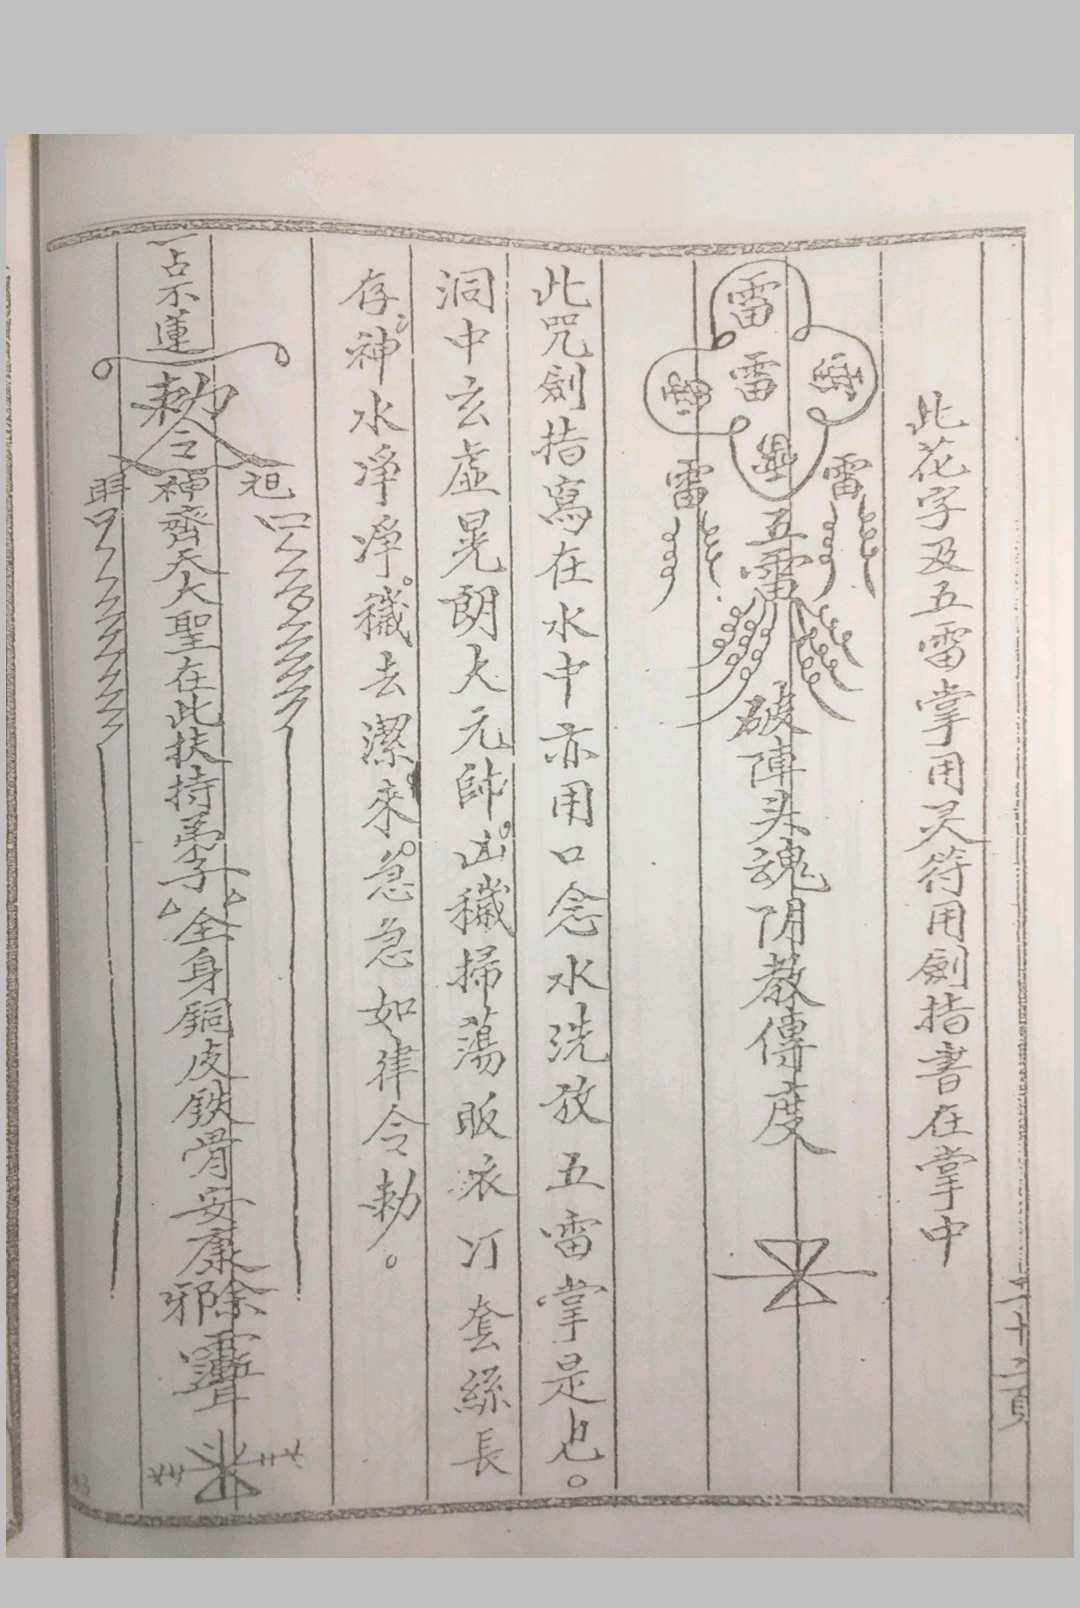 五十二頁
此花字及五雷掌用灵符用劍指書在掌中
雷
雷
雷 雷
五雷破陣头魂阴教傳度
此咒劍指寫在水中亦用口念水洗放五雷掌是也。
洞中玄虛晃朗大元帥。凶穢掃蕩販依汀套絲長
存。神水淨淨。穢去潔來。急急如律令勅。
一占不蓮
勅令
神齊天大聖在此扶持弟子厶厶全身銅皮鉄骨安康除邪